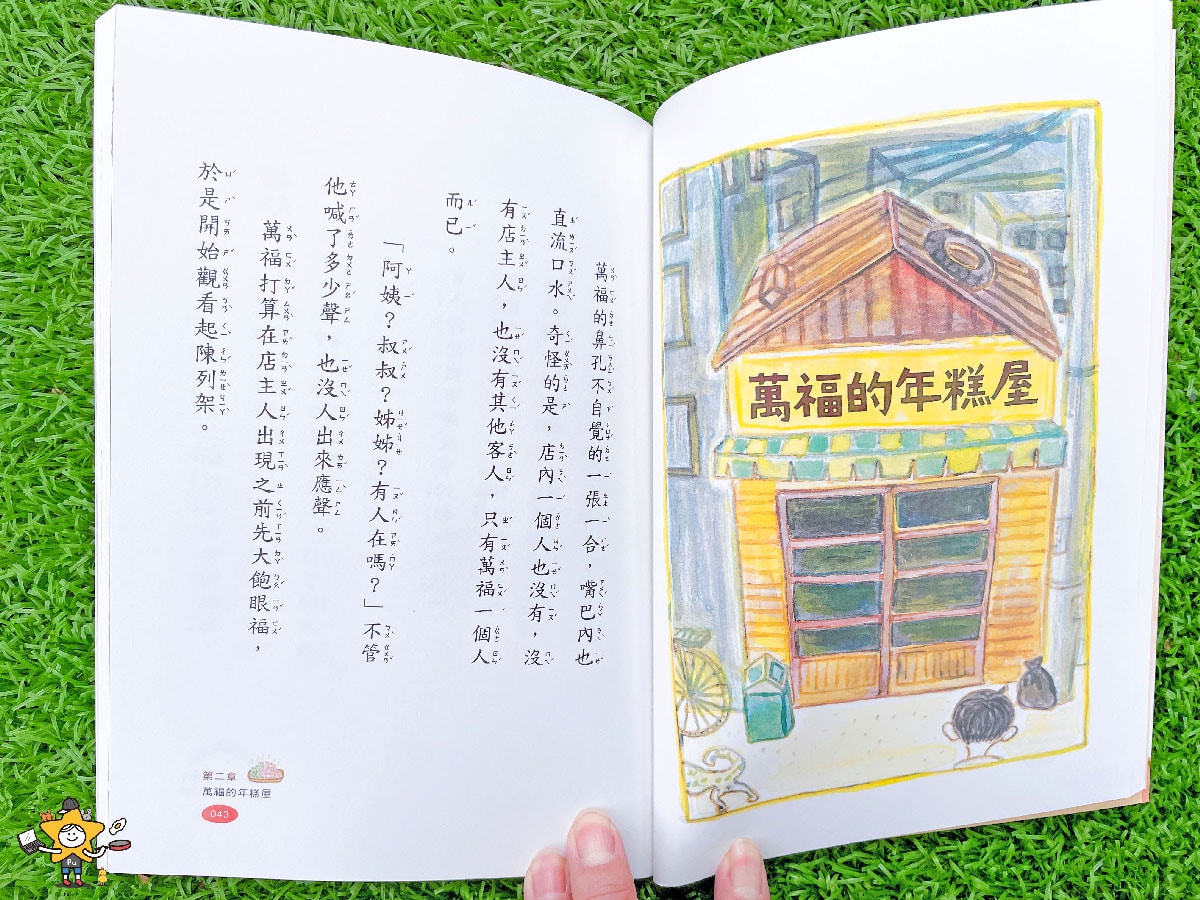 萬福的年糕屋
萬福的鼻孔不自覺的一張一合，嘴巴內也
直流口水。奇怪的是，店內一個人也沒有，沒
有店主人，也沒有其他客人，只有萬福一個人
而已。
「阿姨？叔叔？姊姊？有人在嗎？」不管
他喊了多少聲，也沒人出來應聲。
萬福打算在店主人出現之前先大飽眼福，
於是開始觀看起陳列架。
第二章
萬福的年糕屋
043
Pu